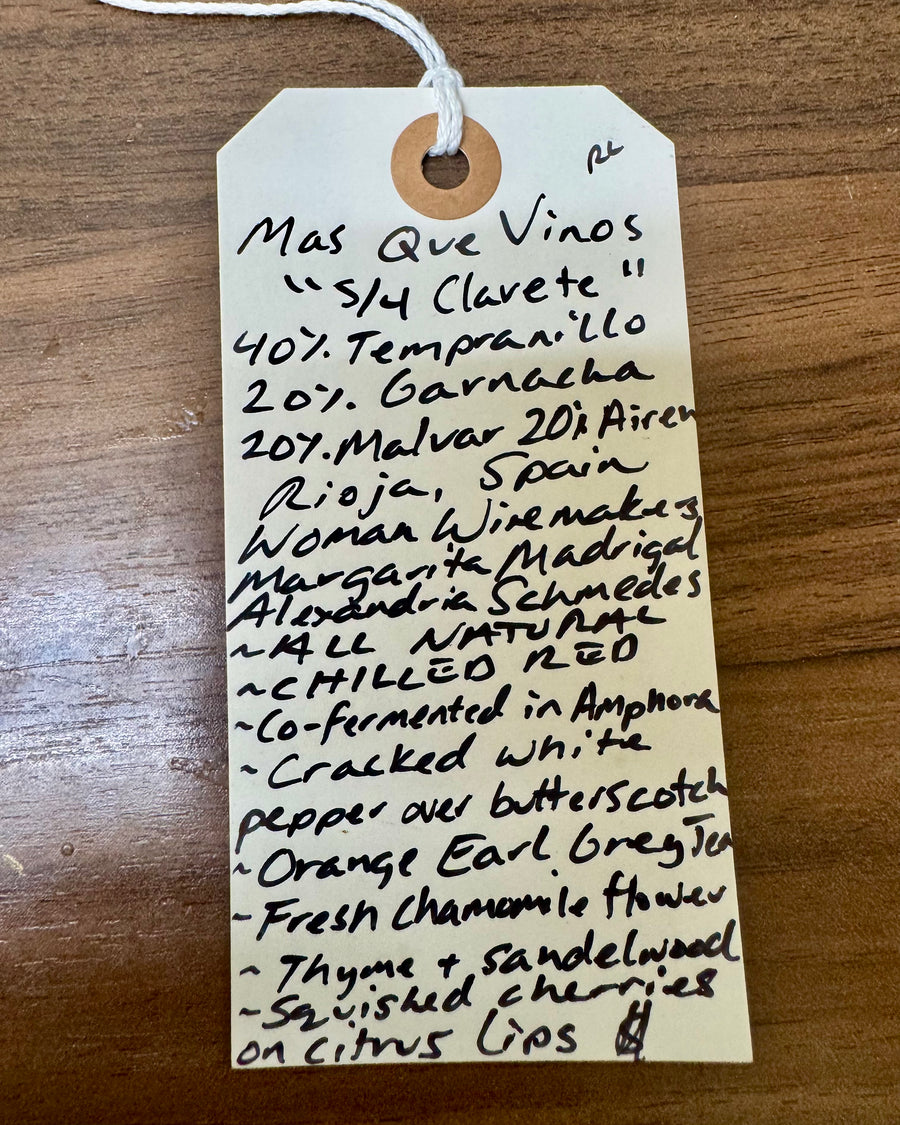 RL
Mas Que Vinos
"S/4 Clarete"
40%. Tempranillo
20%. Garnacha
20%. Malvar 20% Airen
Rioja, Spain
Woman Winemakers
Margarita Madrigal
Alexandria Schmedes
~ALL NATURAL
~CHILLED RED
~Co-fermented in Amphora
~Cracked white
pepper over butterscotch
~Orange Earl Grey Tea
~Fresh Chamomile flower
~Thyme + sandelwood
~Squished cherries
on citrus lips